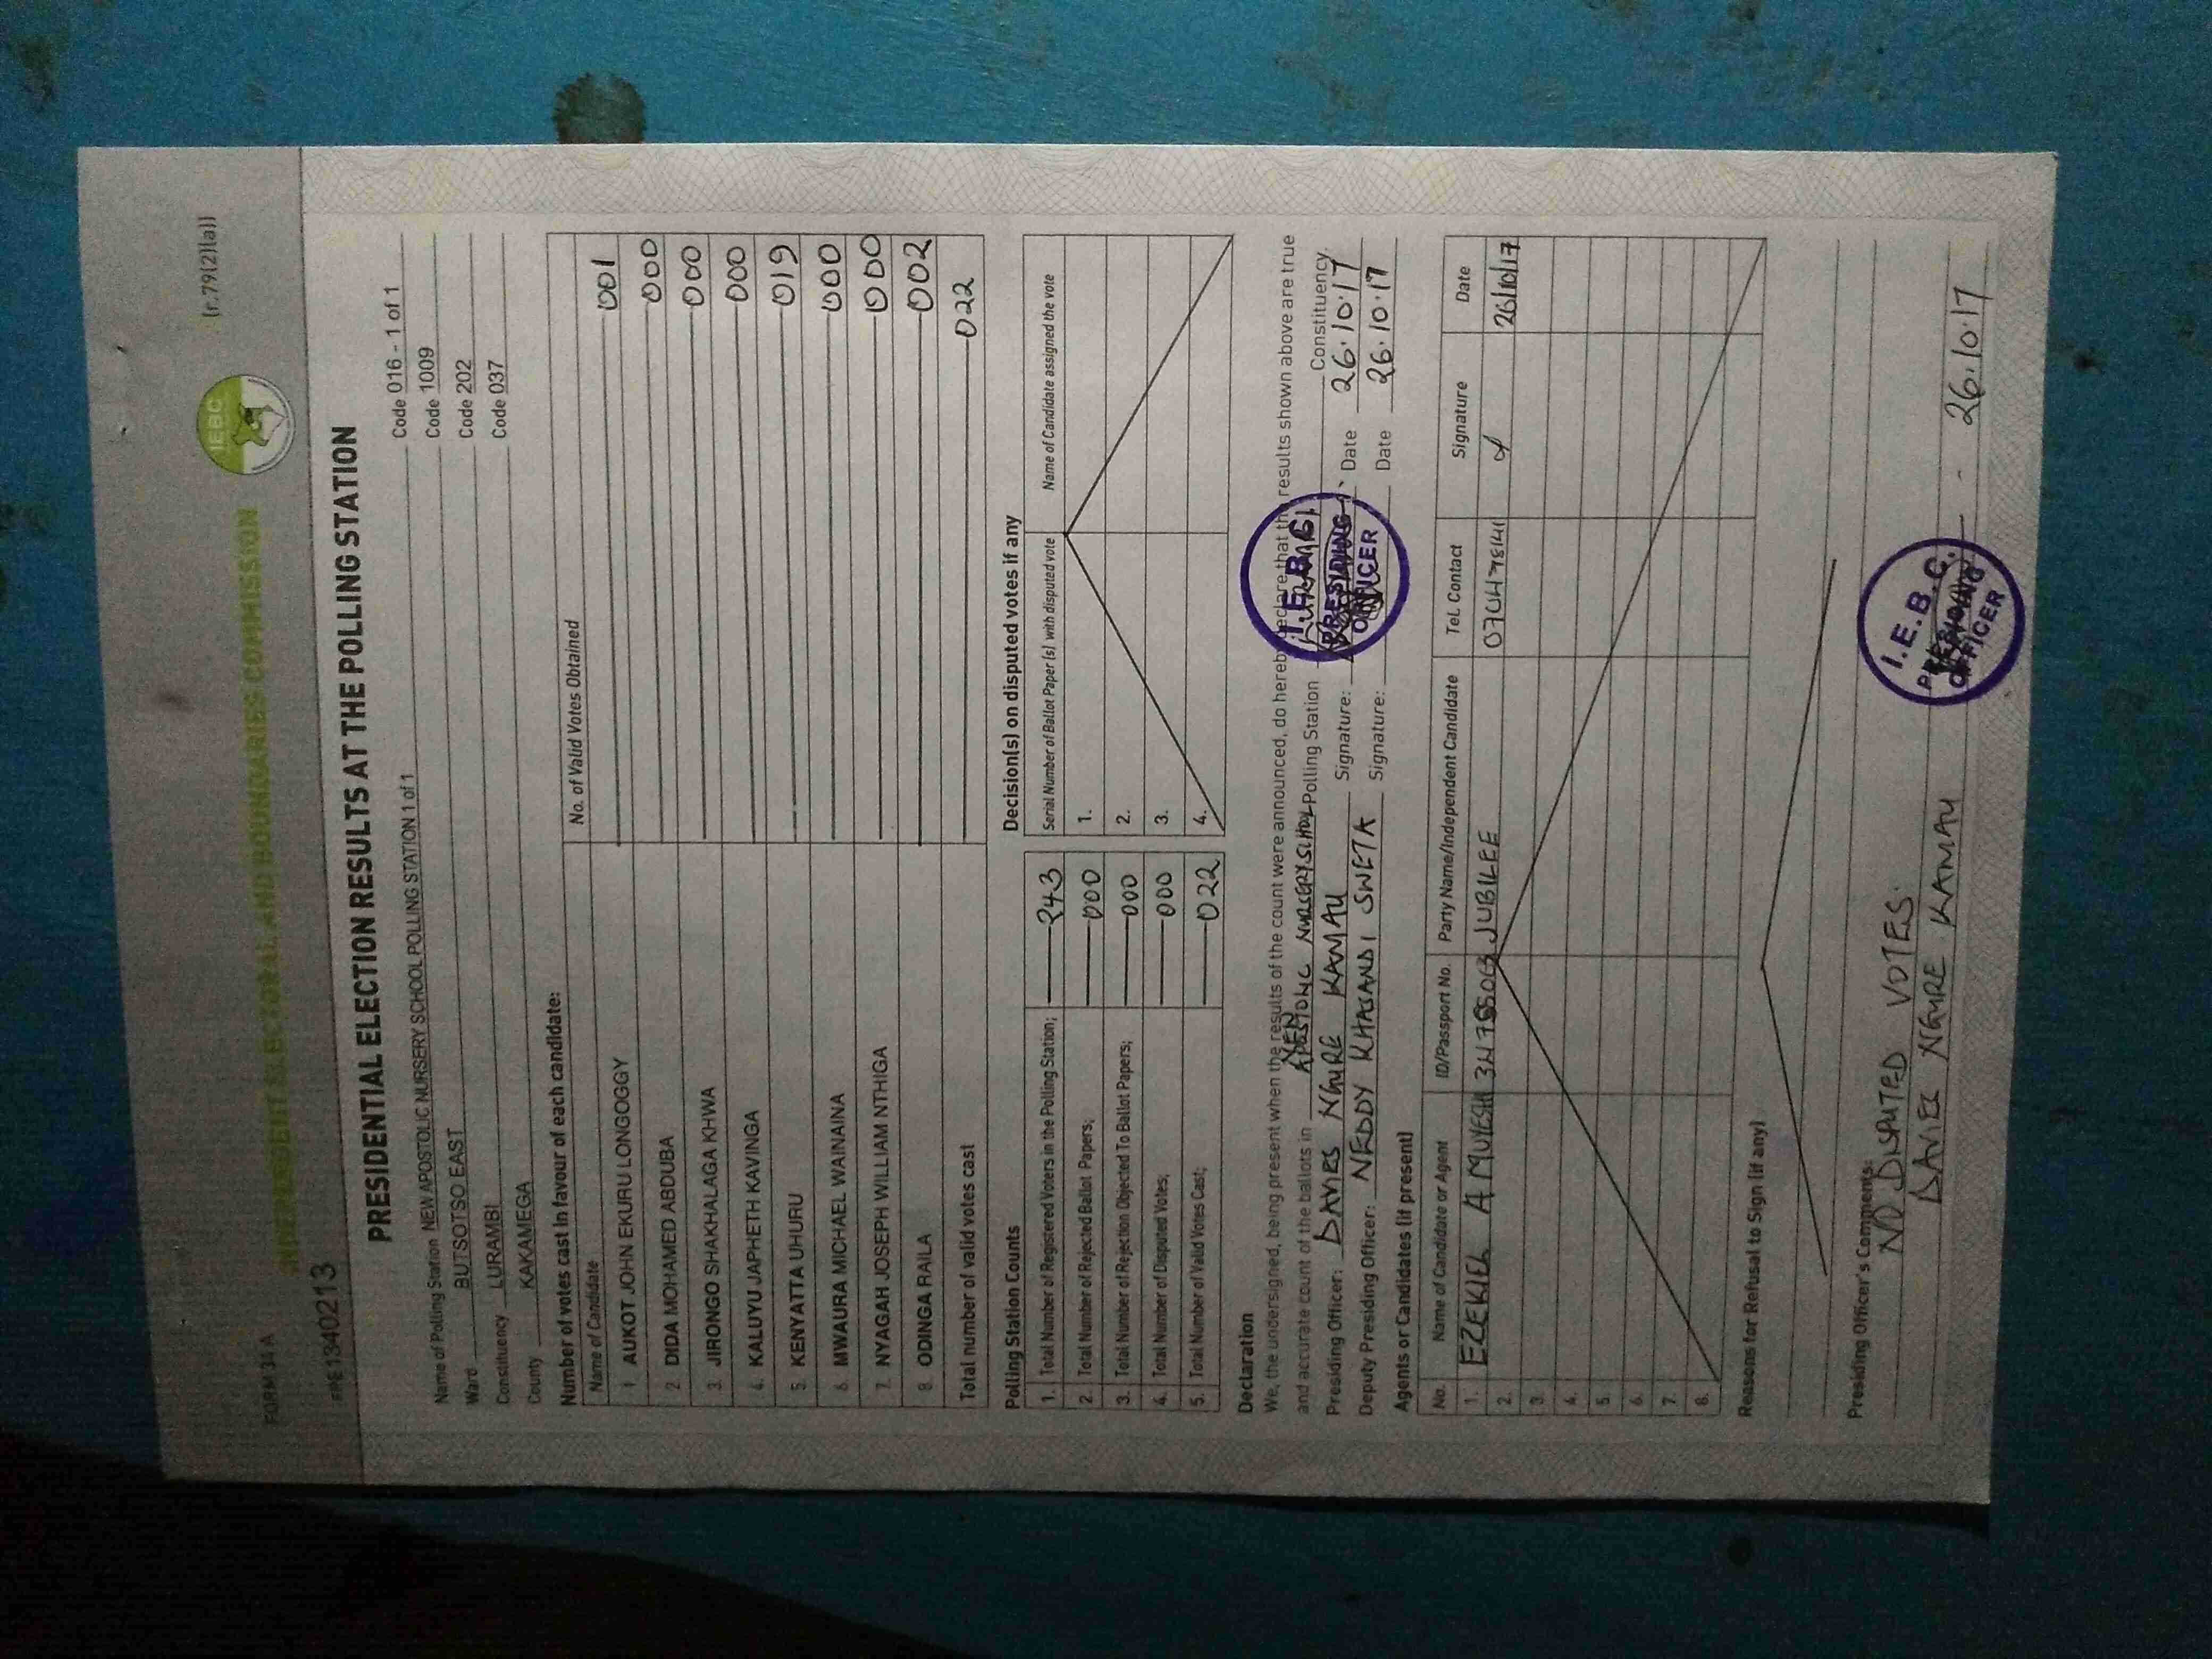 FORM 34 A
(r.79(2)(a))
INDEPENDENT ELECTORAL AND BOUNDARIES COMMISSION
IEBC
PRE1340213
PRESIDENTIAL ELECTION RESULTS AT THE POLLING STATION
Name of Polling Station NEW APOSTOLIC NURSERY SCHOOL POLLING STATION 1 of 1 Code 016 - 1 of 1
Ward BUTSOTSO EAST Code 1009
Constituency LURAMBI Code 202
County KAKAMEGA Code 037
Number of votes cast in favour of each candidate:
Name of Candidate No. of Valid Votes Obtained
1 AUKOT JOHN EKURU LONGOGGY 001
2 DIDA MOHAMED ABDUBA 000
3. JIRONGO SHAKHALAGA KHWA 000
4. KALUYU JAPHETH KAVINGA 000
5. KENYATTA UHURU 019
6 MWAURA MICHAEL WAINAINA 000
7. NYAGAH JOSEPH WILLIAM NTHIGA 000
8. ODINGA RAILA 002
Total number of valid votes cast 022
Polling Station Counts
1. Total Number of Registered Voters in the Polling Station; 243
2. Total Number of Rejected Ballot Papers; 000
3. Total Number of Rejection Objected To Ballot Papers; 000
4. Total Number of Disputed Votes; 000
5. Total Number of Valid Votes Cast; 022
Decision(s) on disputed votes if any
Serial Number of Ballot Paper (s) with disputed vote Name of Candidate assigned the vote
1.
2.
3.
4.
Declaration
We, the undersigned, being present when the results of the count were announced, do hereby declare that the results shown above are true
and accurate count of the ballots in NEW APOSTOLIC NURSERY SCHOOL Polling Station LURAMBI Constituency.
Presiding Officer: DAVIES NGURE KAMAU Signature: Date 26.10.17
Deputy Presiding Officer: NEDDY KHASANDI SWETA Signature: Date 26.10.17
I.E.B.C.
PRESIDING
OFFICER
Agents or Candidates (if present)
No. Name of Candidate or Agent ID/Passport No. Party Name/Independent Candidate Tel. Contact Signature Date
1. EZEKIEL A MUYESHI JUBILEE 26/10/17
2.
3.
4.
5.
6.
7.
8.
Reasons for Refusal to Sign (if any)
Presiding Officer's Comments:
NO DISPUTED VOTES.
DAVIES NGURE KAMAU 26.10.17
I.E.B.C.
PRESIDING
OFFICER